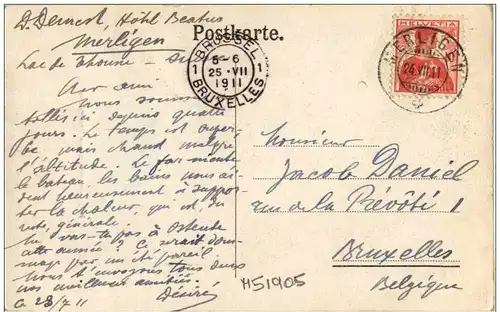 D. Dement, Hôtel Beatus
Merligen
Lac de Thoune - Suisse
Postkarte.
BRUSSEL
1 5-6 1
25 VII
1911
BRUXELLES
HELVETIA
MERLIGEN
24.VII.11
Cher ami
Nous sommes
installés ici depuis quatre
jours. Le temps est super-
be, mais chaud malgré
l'altitude. Le
le bateau, les bains nous ai-
dent heureusement à suppor-
ter la chaleur, qui est, du
reste, générale.
Ne vas-tu pas à Ostende
cette année? Ce serait dom-
mage par un été pareil.
Nous t'envoyons tous deux
nos meilleures amitiés.
Désiré
ce 23/7 11
Monsieur
Jacob Daniel
rue de la Prévôté 1
Bruxelles
Belgique
M51905